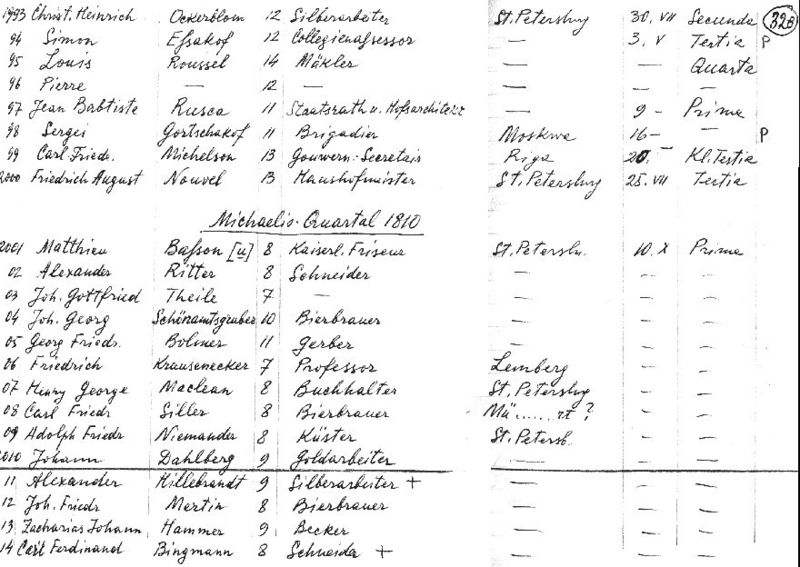 1993 Christ. Heinrich Ockerblom 12 Silberarbeiter St. Petersburg 30. VII Secunda 328
94 Simon Eſsakof 12 Collegienaſsessor — 3. V Tertia P
95 Louis Roussel 14 Mäkler — — Quarta
96 Pierre — 12 — — — —
97 Jean Babtiste Rusca 11 Staatsrath u. Hofsarchitekt — 9 - Prima
98 Sergei Gortschakof 11 Brigadier Moskwa 16 — — P
99 Carl. Friedr. Michelson 13 Gouvern. Secretair Riga 20. — Kl. Tertia
2000 Friedrich August Nouvel 13 Haushofmeister St. Petersburg 25. VII Tertia
Michaelis-Quartal 1810
2001 Matthieu Baſson [u] 8 Kaiserl. Friseur St. Petersbu. 10. X Prima
02 Alexander Ritter 8 Schneider — — —
03 Joh. Gottfried Theile 7 — — — —
04 Joh. Georg Schönamtsgruber 10 Bierbrauer — — —
05 Georg Friedr. Bolmer 11 Gerber — — —
06 Friedrich Krausenecker 7 Professor Lemberg — —
07 Henry George Maclean 8 Buchhalter St. Petersburg — —
08 Carl Friedr Siller 8 Bierbrauer Mü......rt? — —
09 Adolph Friedr Niemander 8 Küster St. Petersb. — —
2010 Johann Dahlberg 9 Goldarbeiter — — —
11 Alexander Hillebrandt 9 Silberarbeiter + — — —
12 Joh. Friedr Mertin 8 Bierbrauer — — —
13 Zacharias Johann Hammer 9 Becker — — —
14 Carl Ferdinand Bingmann 8 Schneider + — — —